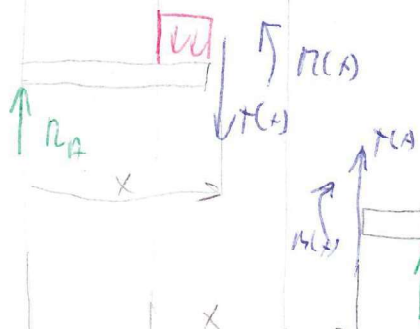 M(x)
T(x)
R_A
x
T(x)
M(x)
x